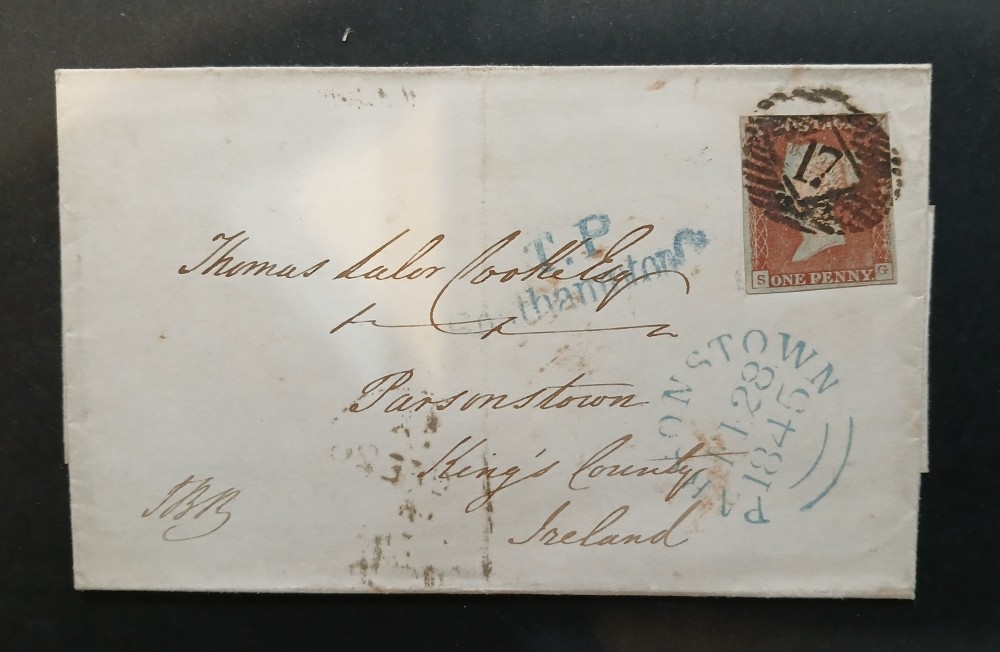 POSTAGE
17
S ONE PENNY. G
T.P
Southampton
Thomas Lalor Cooke Esq
Parsonstown
King's County
Ireland
PARSONSTOWN
28
1845